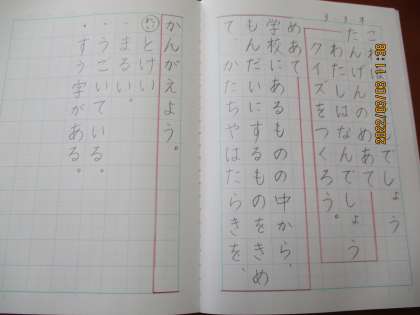 でしょう
たんげんのめあて
わたしはなんでしょう
クイズをつくろう。
めあて
学校にあるものの中から、
もんだいにするものをきめ
て、かたちやはたらきを、
かんがえよう。
れい
とけい
・まるい。
・うごいている。
・すう字がある。